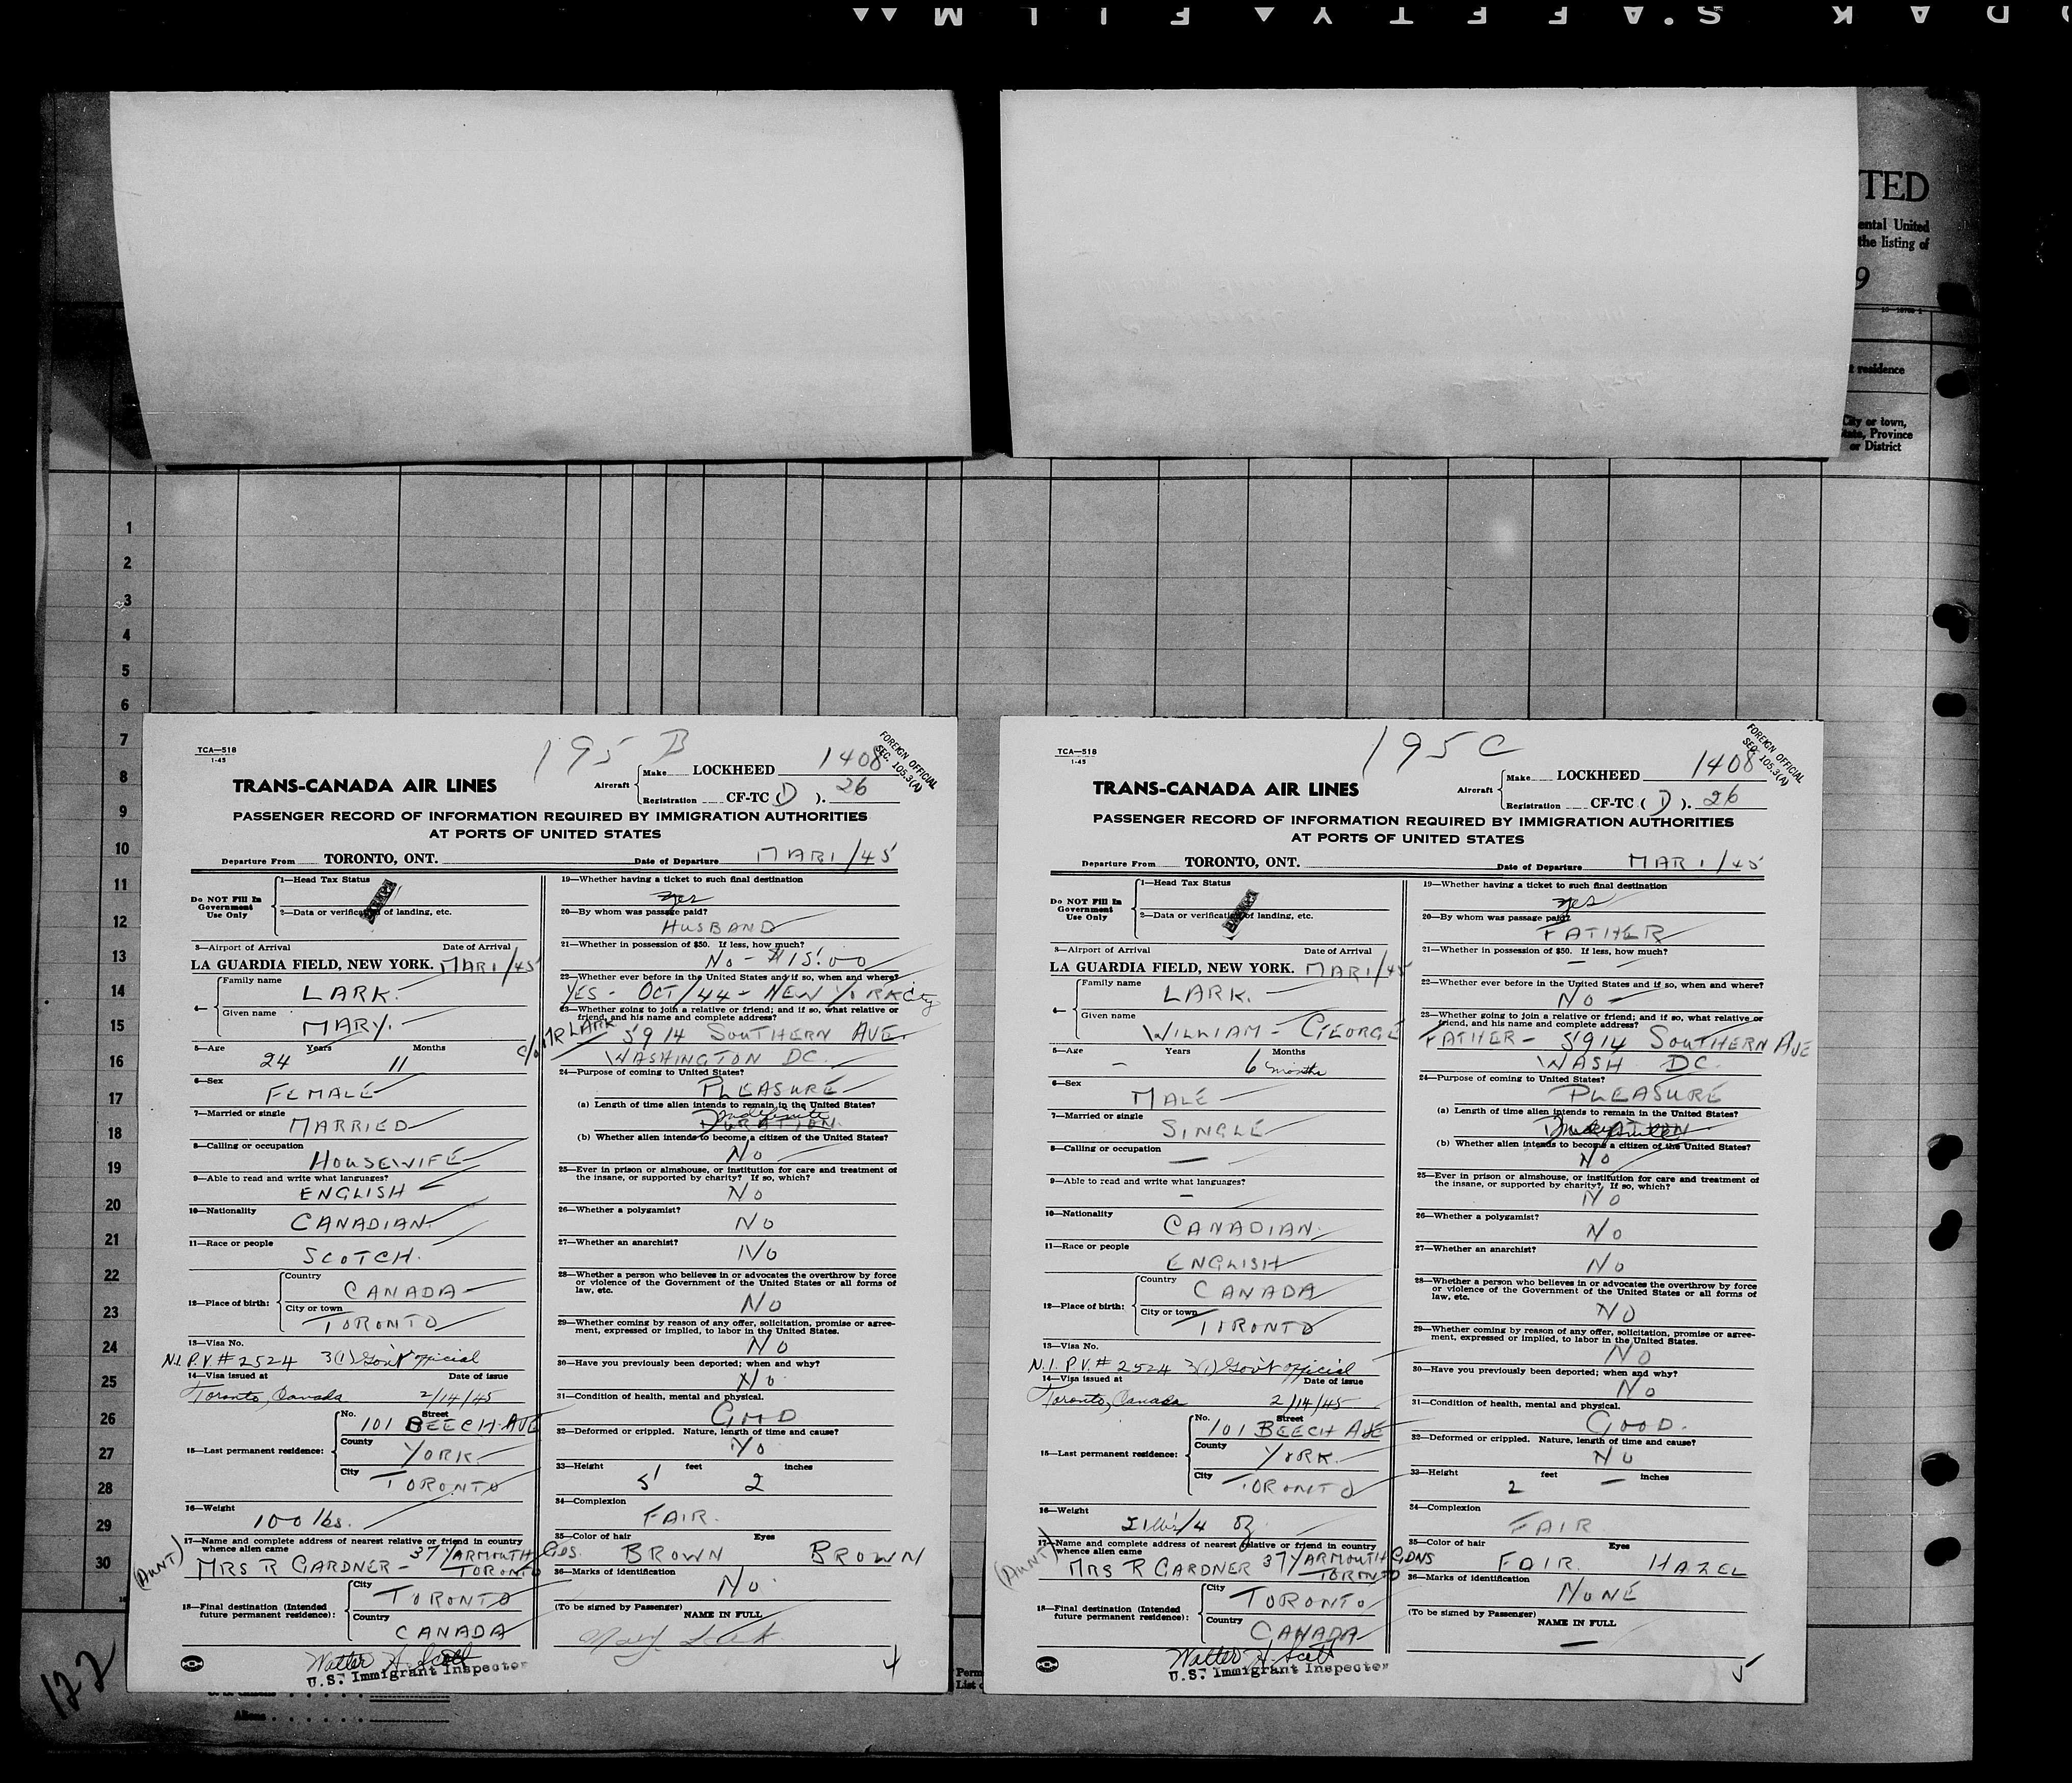 KODAK SAFETY FILM
TED
ental United
the listing of
9
residence
City or town,
State, Province
or District
1
2
3
4
5
6
7
8
9
10
11
12
13
14
15
16
17
18
19
20
21
22
23
24
25
26
27
28
29
30
122
Aliens
Perm
List o
TCA—518
1-45
195 B
1408
FOREIGN OFFICIAL
SEC. 105.3(A)
TRANS-CANADA AIR LINES
Aircraft
Make LOCKHEED
Registration CF-TC (D). 26
PASSENGER RECORD OF INFORMATION REQUIRED BY IMMIGRATION AUTHORITIES
AT PORTS OF UNITED STATES
Departure From TORONTO, ONT. Date of Departure MAR 1/45
Do NOT Fill In
Government
Use Only
1—Head Tax Status
2—Data or verification of landing, etc.
3—Airport of Arrival Date of Arrival
LA GUARDIA FIELD, NEW YORK. MAR 1/45
4—
Family name
LARK.
Given name
MARY.
5—Age Years Months
24 11
6—Sex
FEMALE
7—Married or single
MARRIED
8—Calling or occupation
HOUSEWIFE
9—Able to read and write what languages?
ENGLISH
10—Nationality
CANADIAN
11—Race or people
SCOTCH.
12—Place of birth:
Country
CANADA
City or town
TORONTO
13—Visa No.
N.I.P.V. # 2524 3(1) Gov't official
14—Visa issued at Date of issue
Toronto, Canada 2/14/45
15—Last permanent residence:
No. Street
101 BEECH AVE
County
YORK
City
TORONTO
16—Weight
100 lbs.
17—Name and complete address of nearest relative or friend in country
whence alien came
(AUNT) MRS R GARDNER - 37 YARMOUTH GDS.
TORONTO
18—Final destination (Intended
future permanent residence):
City
TORONTO
Country
CANADA
Walter H. Scott
U.S. Immigrant Inspector
19—Whether having a ticket to such final destination
yes
20—By whom was passage paid?
HUSBAND
21—Whether in possession of $50. If less, how much?
NO - $15.00
22—Whether ever before in the United States and if so, when and where?
YES - OCT/44 - NEW YORK City
23—Whether going to join a relative or friend; and if so, what relative or
friend, and his name and complete address?
c/o MR LARK 5914 SOUTHERN AVE.
WASHINGTON DC.
24—Purpose of coming to United States?
PLEASURE
(a) Length of time alien intends to remain in the United States?
Indefinite
DURATION
(b) Whether alien intends to become a citizen of the United States?
NO
25—Ever in prison or almshouse, or institution for care and treatment of
the insane, or supported by charity? If so, which?
NO
26—Whether a polygamist?
NO
27—Whether an anarchist?
NO
28—Whether a person who believes in or advocates the overthrow by force
or violence of the Government of the United States or all forms of
law, etc.
NO
29—Whether coming by reason of any offer, solicitation, promise or agree-
ment, expressed or implied, to labor in the United States.
NO
30—Have you previously been deported; when and why?
NO.
31—Condition of health, mental and physical.
GOOD
32—Deformed or crippled. Nature, length of time and cause?
NO
33—Height feet inches
5' 2
34—Complexion
FAIR.
35—Color of hair Eyes
BROWN BROWN
36—Marks of identification
NO.
(To be signed by Passenger) NAME IN FULL
Mary Lark
TCA—518
1-45
195 C
1408
FOREIGN OFFICIAL
SEC. 105.3(A)
TRANS-CANADA AIR LINES
Aircraft
Make LOCKHEED
Registration CF-TC (D). 26
PASSENGER RECORD OF INFORMATION REQUIRED BY IMMIGRATION AUTHORITIES
AT PORTS OF UNITED STATES
Departure From TORONTO, ONT. Date of Departure MAR 1/45
Do NOT Fill In
Government
Use Only
1—Head Tax Status
2—Data or verification of landing, etc.
3—Airport of Arrival Date of Arrival
LA GUARDIA FIELD, NEW YORK. MAR 1/45
4—
Family name
LARK.
Given name
WILLIAM - GEORGE
5—Age Years Months
— 6 months
6—Sex
MALE
7—Married or single
SINGLE
8—Calling or occupation
—
9—Able to read and write what languages?
—
10—Nationality
CANADIAN
11—Race or people
ENGLISH
12—Place of birth:
Country
CANADA
City or town
TORONTO
13—Visa No.
N.I.P.V. # 2524 3(1) Gov't official
14—Visa issued at Date of issue
Toronto, Canada 2/14/45
15—Last permanent residence:
No. Street
101 BEECH AVE
County
YORK
City
TORONTO
16—Weight
21 lbs/4 oz
17—Name and complete address of nearest relative or friend in country
whence alien came
(AUNT) MRS R GARDNER 37 YARMOUTH GDNS
TORONTO
18—Final destination (Intended
future permanent residence):
City
TORONTO
Country
CANADA
Walter H. Scott
U.S. Immigrant Inspector
19—Whether having a ticket to such final destination
yes
20—By whom was passage paid?
FATHER
21—Whether in possession of $50. If less, how much?
— —
22—Whether ever before in the United States and if so, when and where?
NO —
23—Whether going to join a relative or friend; and if so, what relative or
friend, and his name and complete address?
FATHER - 5914 SOUTHERN AVE
WASH DC.
24—Purpose of coming to United States?
PLEASURE
(a) Length of time alien intends to remain in the United States?
Indefinite
(b) Whether alien intends to become a citizen of the United States?
NO
25—Ever in prison or almshouse, or institution for care and treatment of
the insane, or supported by charity? If so, which?
NO
26—Whether a polygamist?
NO
27—Whether an anarchist?
NO
28—Whether a person who believes in or advocates the overthrow by force
or violence of the Government of the United States or all forms of
law, etc.
NO
29—Whether coming by reason of any offer, solicitation, promise or agree-
ment, expressed or implied, to labor in the United States.
NO
30—Have you previously been deported; when and why?
NO
31—Condition of health, mental and physical.
GOOD.
32—Deformed or crippled. Nature, length of time and cause?
NO
33—Height feet inches
2 —
34—Complexion
FAIR
35—Color of hair Eyes
FAIR. HAZEL
36—Marks of identification
NONE
(To be signed by Passenger) NAME IN FULL
—